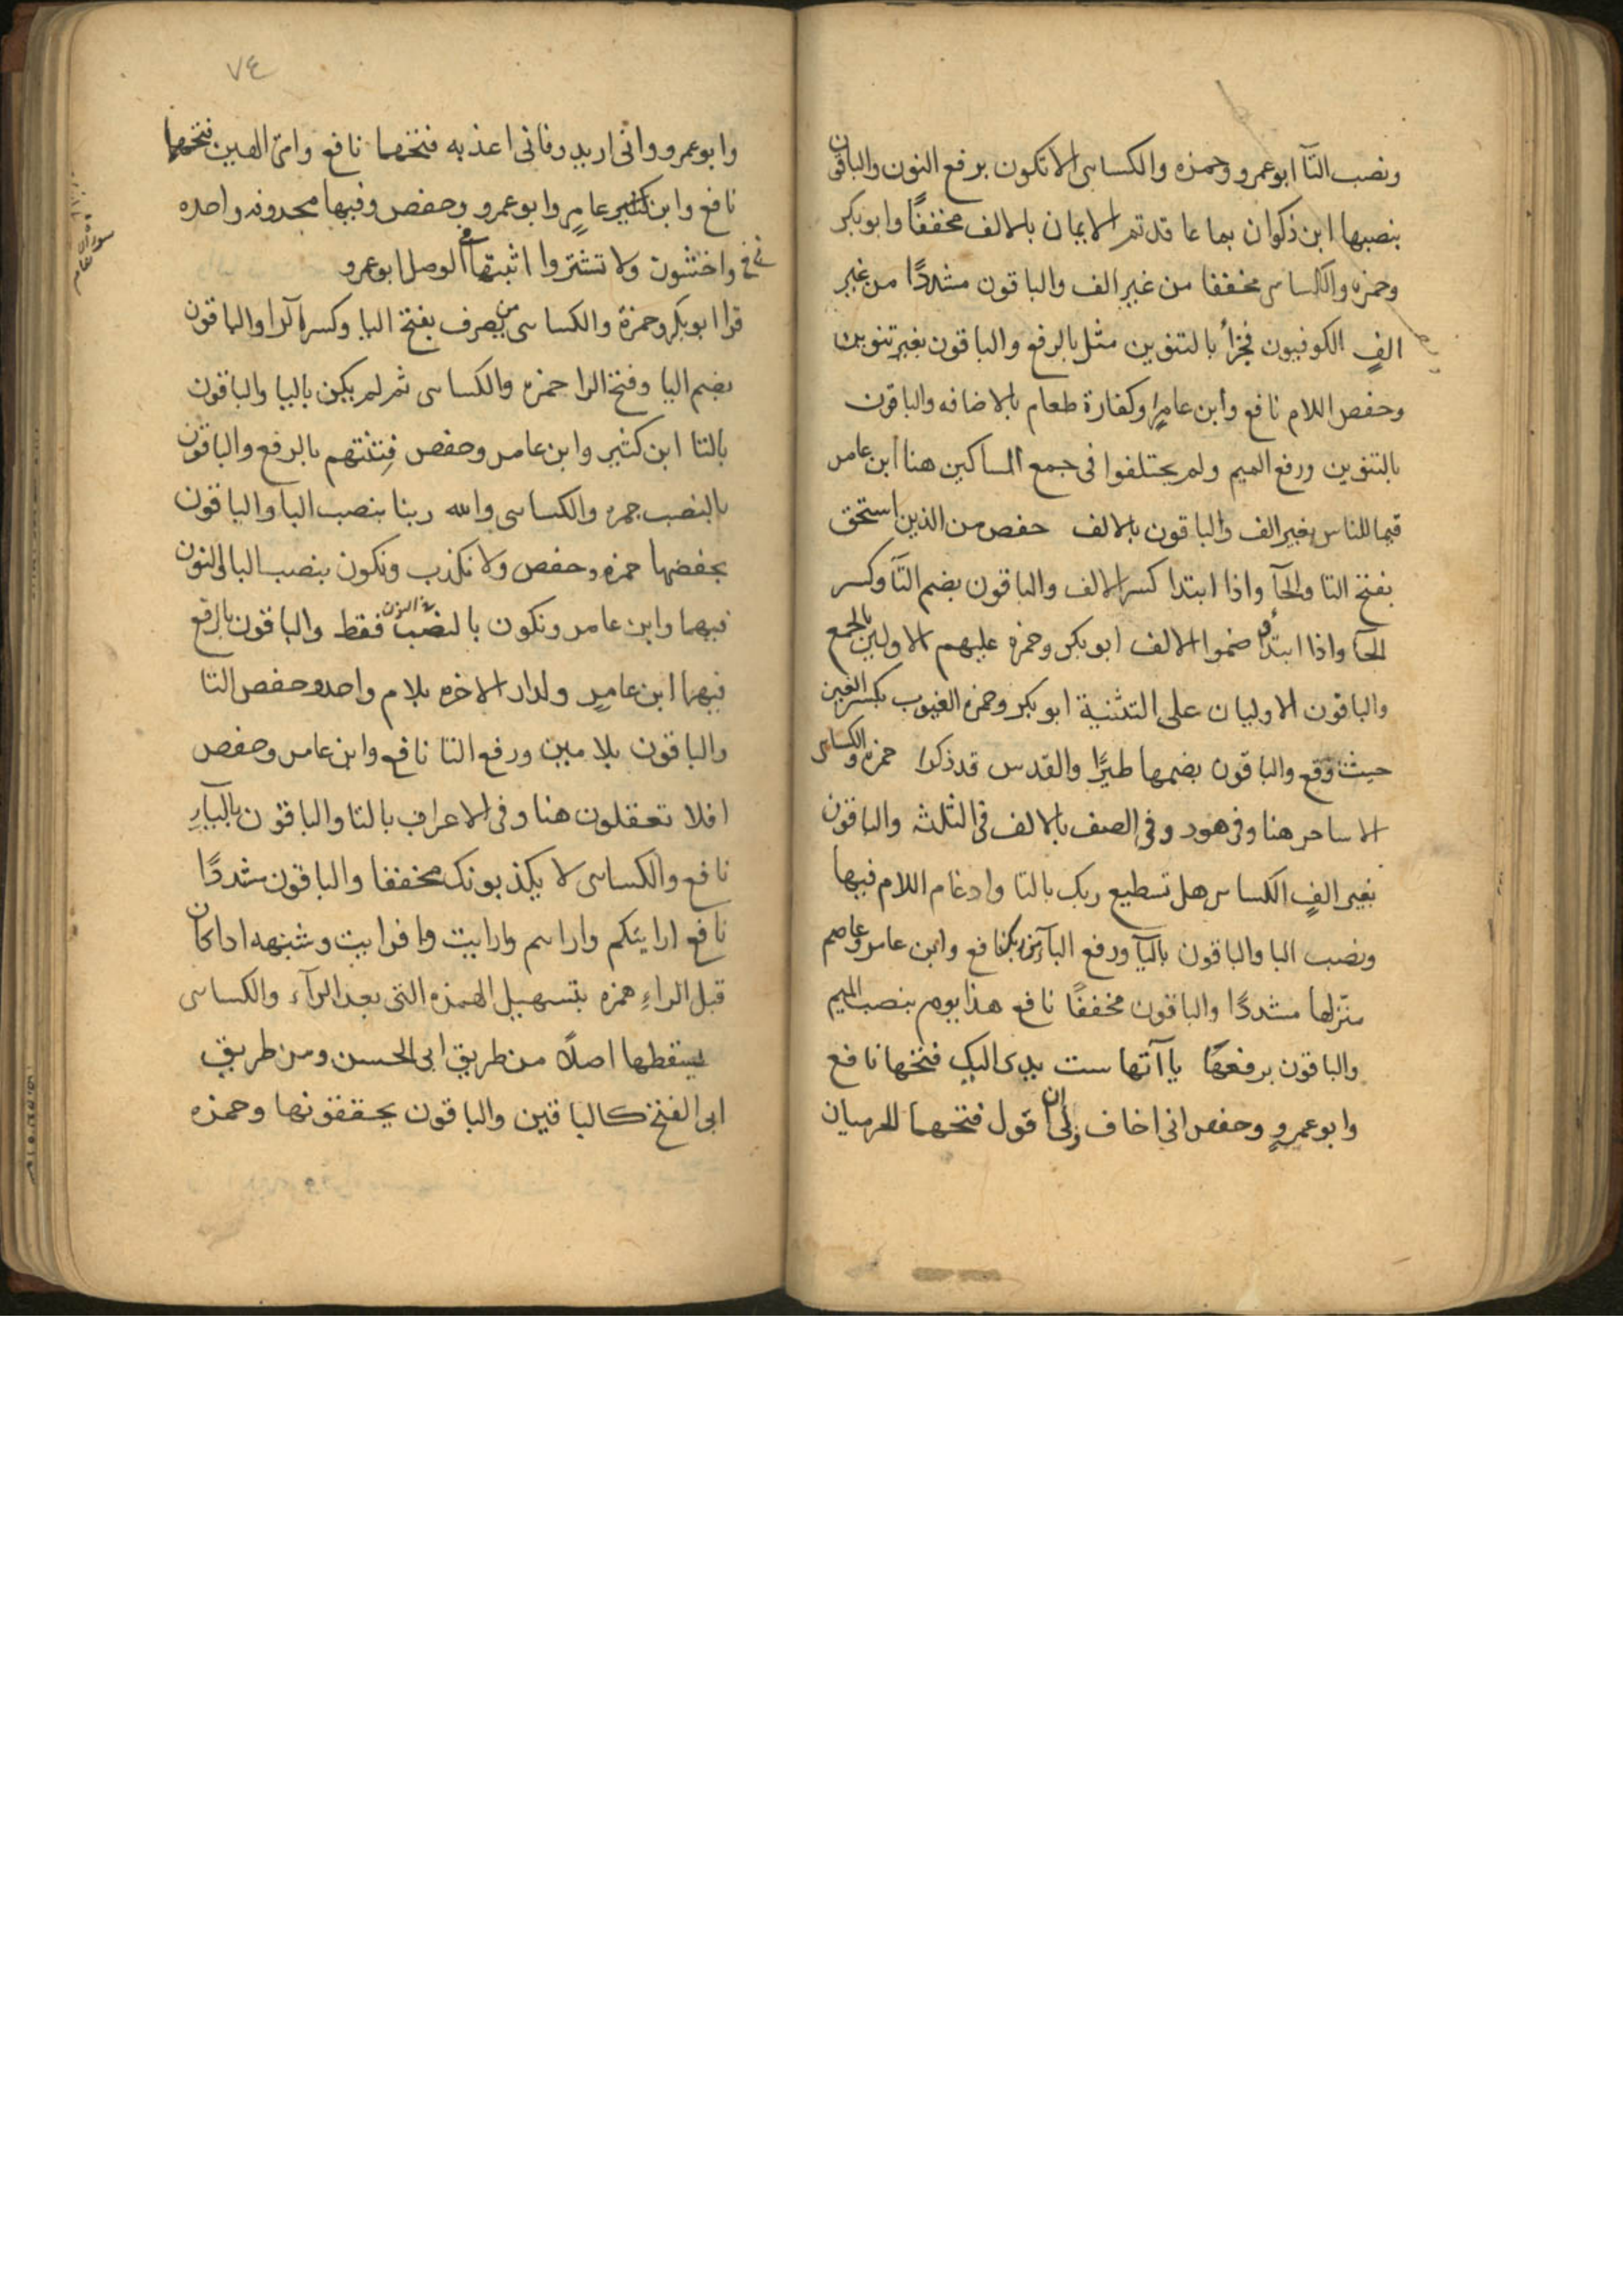 ونصب التآ ابو عمرو وحمزه والكسائى الا تكون برفع النون والباقون
بنصبها ابن ذكوان بما عاقدتم الايمان بالالف مخففًا وابو بكر
وحمزه والكسائى مخففا من غير الف والباقون مشددًا من غير
الفٍ الكوفيون فجزأ بالتنوين مثل بالرفع والباقون بغير تنوين
وخفض اللام نافع وابن عامرٍ او كفارة طعام بالاضافه والباقون
بالتنوين ورفع الميم ولم يختلفوا فى جمع المساكين هنا ابن عامر
قيما للناس بغير الف والباقون بالالف حفص من الذين استحق
بفتح التا والحآ واذا ابتدا كسر الالف والباقون بضم التآ وكسر
الحآ واذا ابتدأوا ضموا الالف ابو بكر وحمزه عليهم الاولين بالجمع
والباقون الاوليان على التثنية ابو بكر وحمزه الغيوب بكسر الغين
حيث وقع والباقون بضمها طيرًا والقدس قد ذكرا حمزه والكسائى
الا ساحر هنا وفى هود وفى الصف بالالف فى الثلثه والباقون
بغير الفٍ الكسائى هل تسطيع ربك بالتا وادغام اللام فيها
ونصب البا والباقون باليآ ورفع البآ من ربك نافع وابن عامر وعاصم
منزلها مشددًا والباقون مخففًا نافع هذا يوم بنصب الميم
والباقون برفعها ياآتها ست يدى اليك فتحها نافع
وابو عمرٍو وحفص انى اخاف ولى ان اقول فتحهما الحرميان
٧٤
وابو عمرو وانى اريد وفانى اعذبه فتحهما نافع وامى الهين فتحها
نافع وابن كثير عامرٍ وابو عمرو وحفص وفيها محذوفه واحده
واخشون ولا تشتروا اثبتها فى الوصل ابو عمرو
قرا ابو بكر وحمزة والكسائى من يصرف بفتح اليا وكسر الرا والباقون
بضم اليا وفتح الرا حمزه والكسائى ثم لم يكن باليا والباقون
بالتا ابن كثير وابن عامر وحفص فتنتهم بالرفع والباقون
بالنصب حمزه والكسائى والله ربنا بنصب البا والباقون
بخفضها حمزه وحفص ولا نكذب ونكون بنصب البا والنون
فيهما وابن عامر ونكون بالنصب فقط والباقون بالرفع
فيهما ابن عامرٍ ولدار الاخره بلام واحده وخفض التا
والباقون بلامين ورفع التا نافع وابن عامر وحفص
افلا تعقلون هنا وفى الاعراف بالتا والباقون باليآءِ
نافع والكسائى لا يكذبونك مخففا والباقون مشددًا
نافع ارايتكم وارايتم وارايت وافرايت وشبهه اذا كان
قبل الراءِ همزه بتسهيل الهمزه التى بعد الرآء والكسائى
يسقطها اصلًا من طريق ابى الحسن ومن طريق
ابى الفتح كالباقين والباقون يحققونها وحمزه